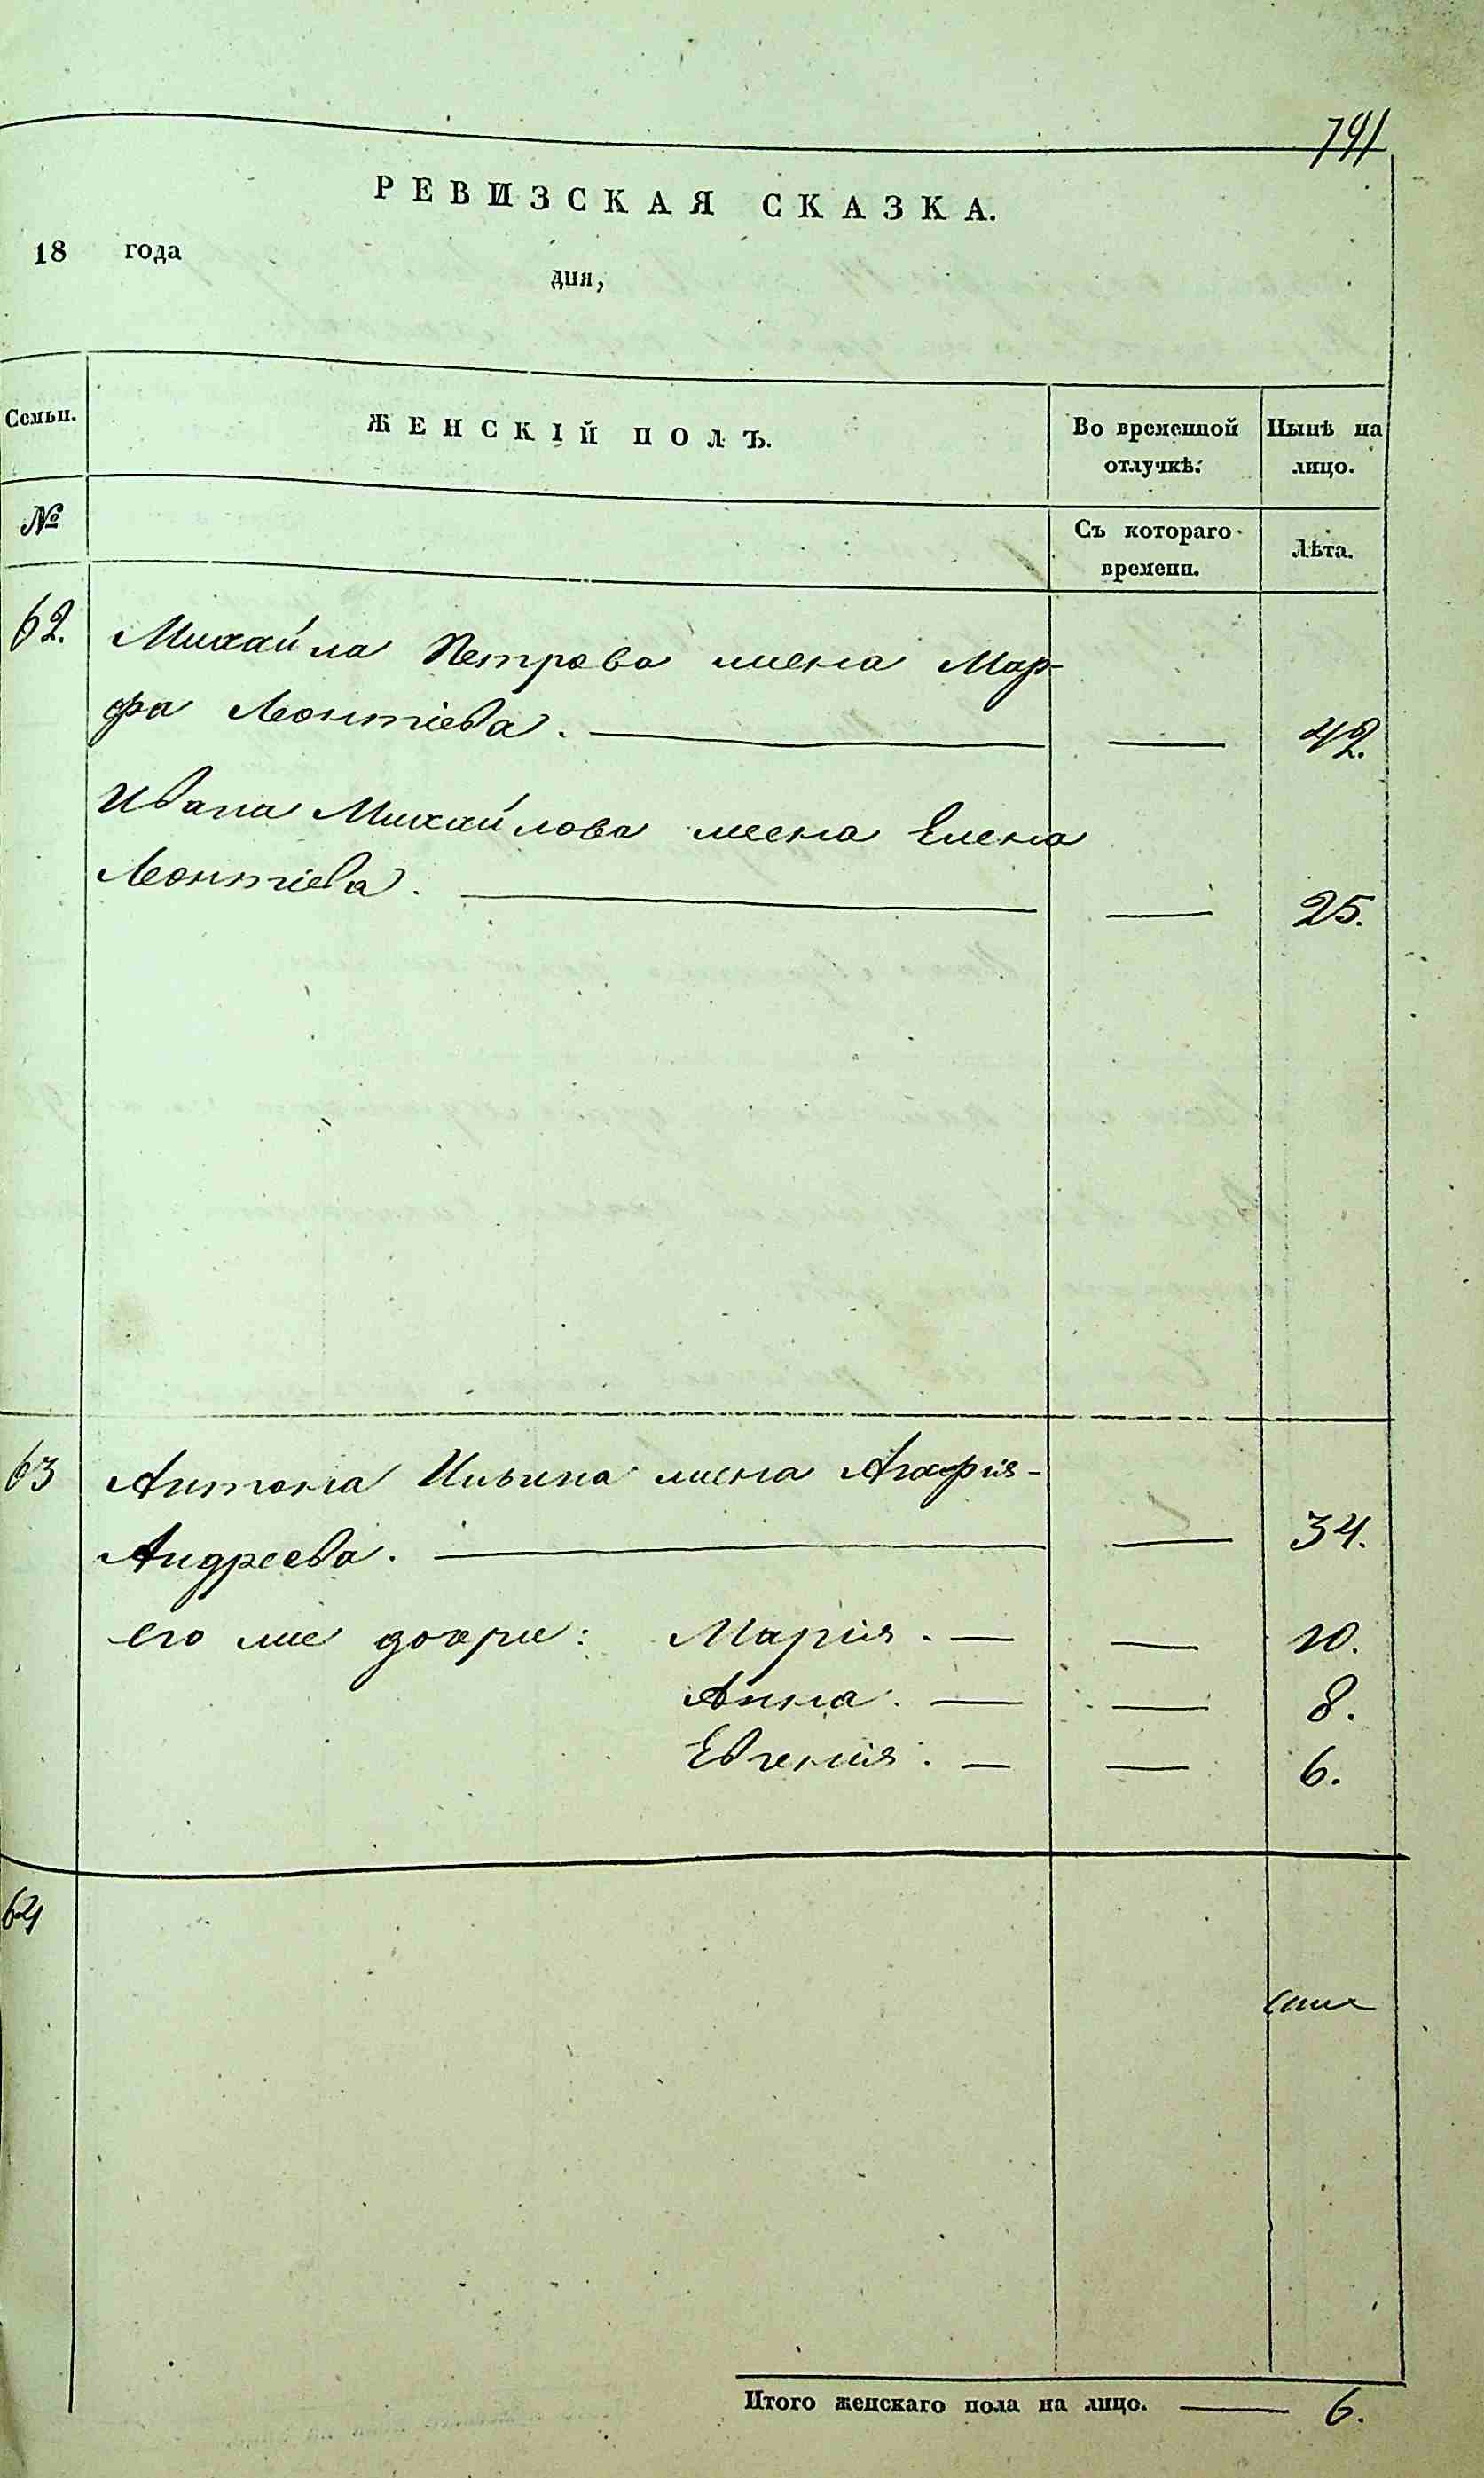 791
РЕВИЗСКАЯ СКАЗКА.
18 года
дня,
Семьи. ЖЕНСКІЙ ПОЛЪ. Во временной Нынѣ на
отлучкѣ. лицо.
№ Съ котораго Лѣта.
времени.
62. Михайла Петрова жена Мар-
фа Леонтіева. — — 42.
Ивана Михайлова жена Елена
Леонтіева. — — 25.
63 Антона Ильина жена Агафія
Андреева. — — 34.
его же дочри: Марія. — — 10.
Анна. — — 8.
Евгенія. — — 6.
64
Итого женскаго пола на лицо. — 6.